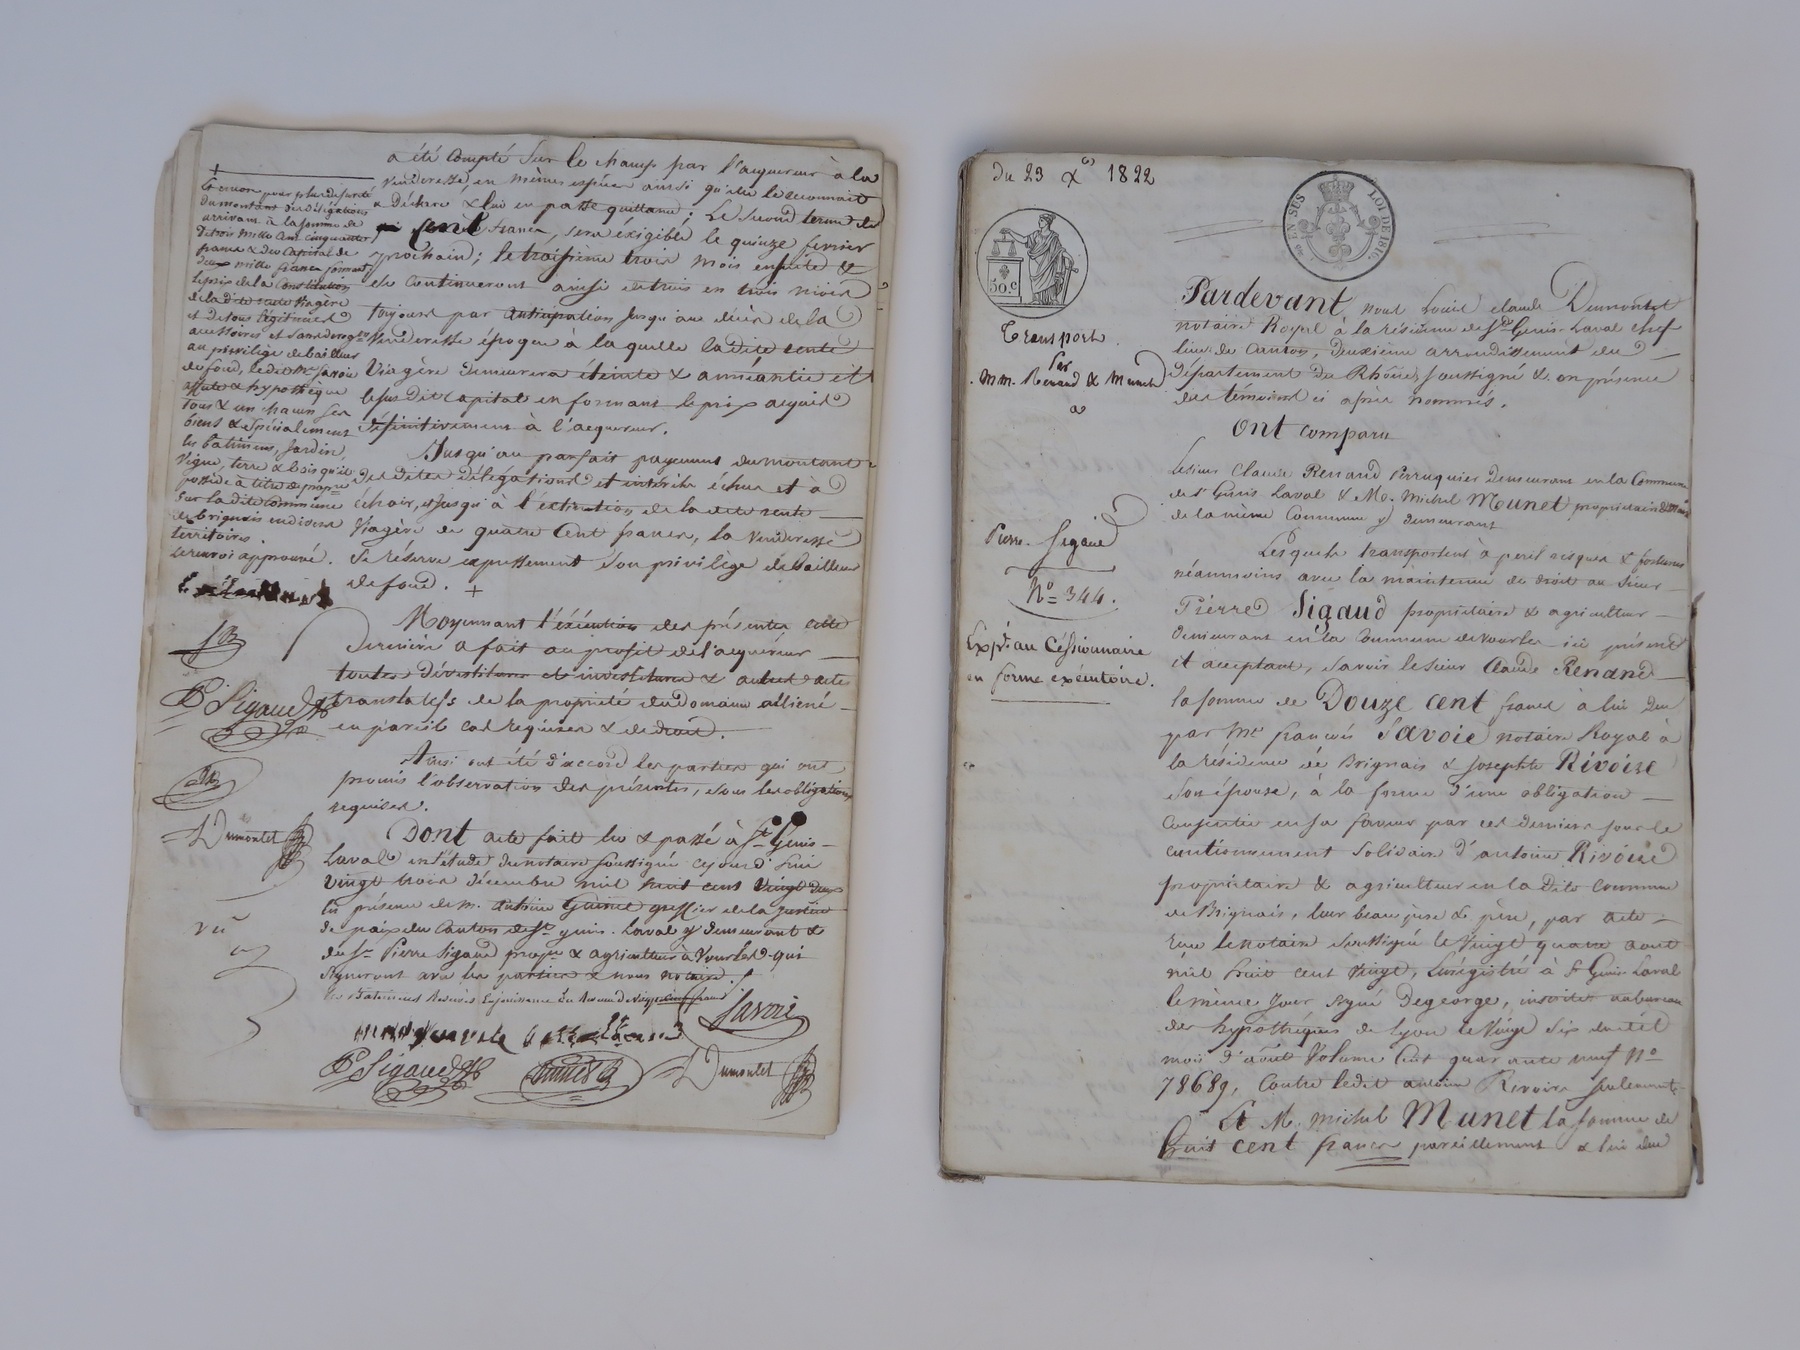 a été compté sur le champ par l'acquereur à la
venderesse, en mêmes espèces ainsi qu'elle le reconnait
& déclare & lui en passe quittance; Le second terme de
cent francs, sera exigible le quinze fevrier
prochain; le troisième trois mois ensuite &
se continueront ainsi de trois en trois mois
toujours par anticipation jusqu'au décès de la
venderesse époque à la quelle la dite rente
viagère demeurera éteinte & anéantie et
le susdit capital en formant le prix acquis
définitivement à l'acquereur.
Jusqu'au parfait payement du montant
des dites délégations et intérêts échus et à
échoir, et jusqu'à l'extinction de la dite rente
viagère de quatre cent francs, la venderesse
se réserve expressement son privilège de bailleur
de fond. +
Moyennant l'exécution des présentes cette
dernière a fait au profit de l'acquéreur
toutes dévestitures et investitures & autres actes
translatifs de la propriété du domaine aliéné
en pareil cas requises & de droit.
Ainsi ont été d'accord les parties qui ont
promis l'observation des présentes, sous les obligations
requises.
Dont acte fait lu & passé à St. Genis-
Laval en l'étude du notaire soussigné ce jourd'hui
vingt trois décembre mil huit cent vingt deux
en présence de M. Antoine greffier de la justice
de paix du Canton de St. genis-Laval y demeurant &
du Sr. Pierre Sigaud propre. & agriculteur à Vourles qui
signeront avec les parties & nous notaire.
Savoie
P. Sigaud
Dumontet
+
et encore pour plus de sureté
du montant des délégations
arrivant à la somme de
de trois mille cent cinquante
francs & du capital de
deux mille francs formant
le prix de la constitution
de la dite rente viagère
et de tous légitimes
accessoires et sans déroger
au privilège de bailleur
de fond, le dit Me. Savoie
affecte & hypothèque
tous & un chacun ses
biens & spécialement
les batimens, jardin,
vigne, terre & bois qu'il
possède à titre de propre
sur la dite commune
de brignais indivise
territoires.
le renvoi approuvé.
P. Sigaud
Dumontet
vu
du 23 Xbre 1822
30.c
EN SUS
LOI DE 1816.
Transport
Par
MM. Renand & Munet
a
Pierre Sigaud
No. 344.
Expn. au Cessionnaire
en forme exécutoire.
Pardevant nous Louis Claude Dumontet
notaire Royal à la résidence de St. Genis-Laval chef
lieu de Canton, deuxième arrondissement du
département du Rhône, soussigné & en présence
des témoins ci après nommés.
Ont comparu
Le sieur Claude Renand Perruquier demeurant en la Commune
de St Genis Laval & M. Michel Munet propriétaire
de la même Commune y demeurant
Lesquels transportent à peril risques & fortunes
néanmoins avec la maintenue de droit au sieur
Pierre Sigaud propriétaire & agriculteur
demeurant en la commune de Vourles ici présent
et acceptant, savoir le sieur Claude Renand
la somme de Douze cent francs à lui due
par Me. françois Savoie notaire Royal à
la résidence de Brignais & Josephte Rivoire
son épouse, à la forme d'une obligation
consentie en sa faveur par ces derniers sous le
cautionnement solidaire d'antoine Rivoire
propriétaire & agriculteur en la dite commune
de Brignais, leur beau père & père, par acte
reçu le notaire soussigné le vingt quatre aout
mil huit cent vingt, Enregistré à St Genis Laval
le même jour signé Degeorge, inscrite au bureau
des hypothèques de Lyon le vingt six du dit
mois d'août Volume Cent quarante neuf No.
78689, Contre ledit antoine Rivoire seulement
Et M. michel Munet la somme de
huit cent francs pareillement à lui due